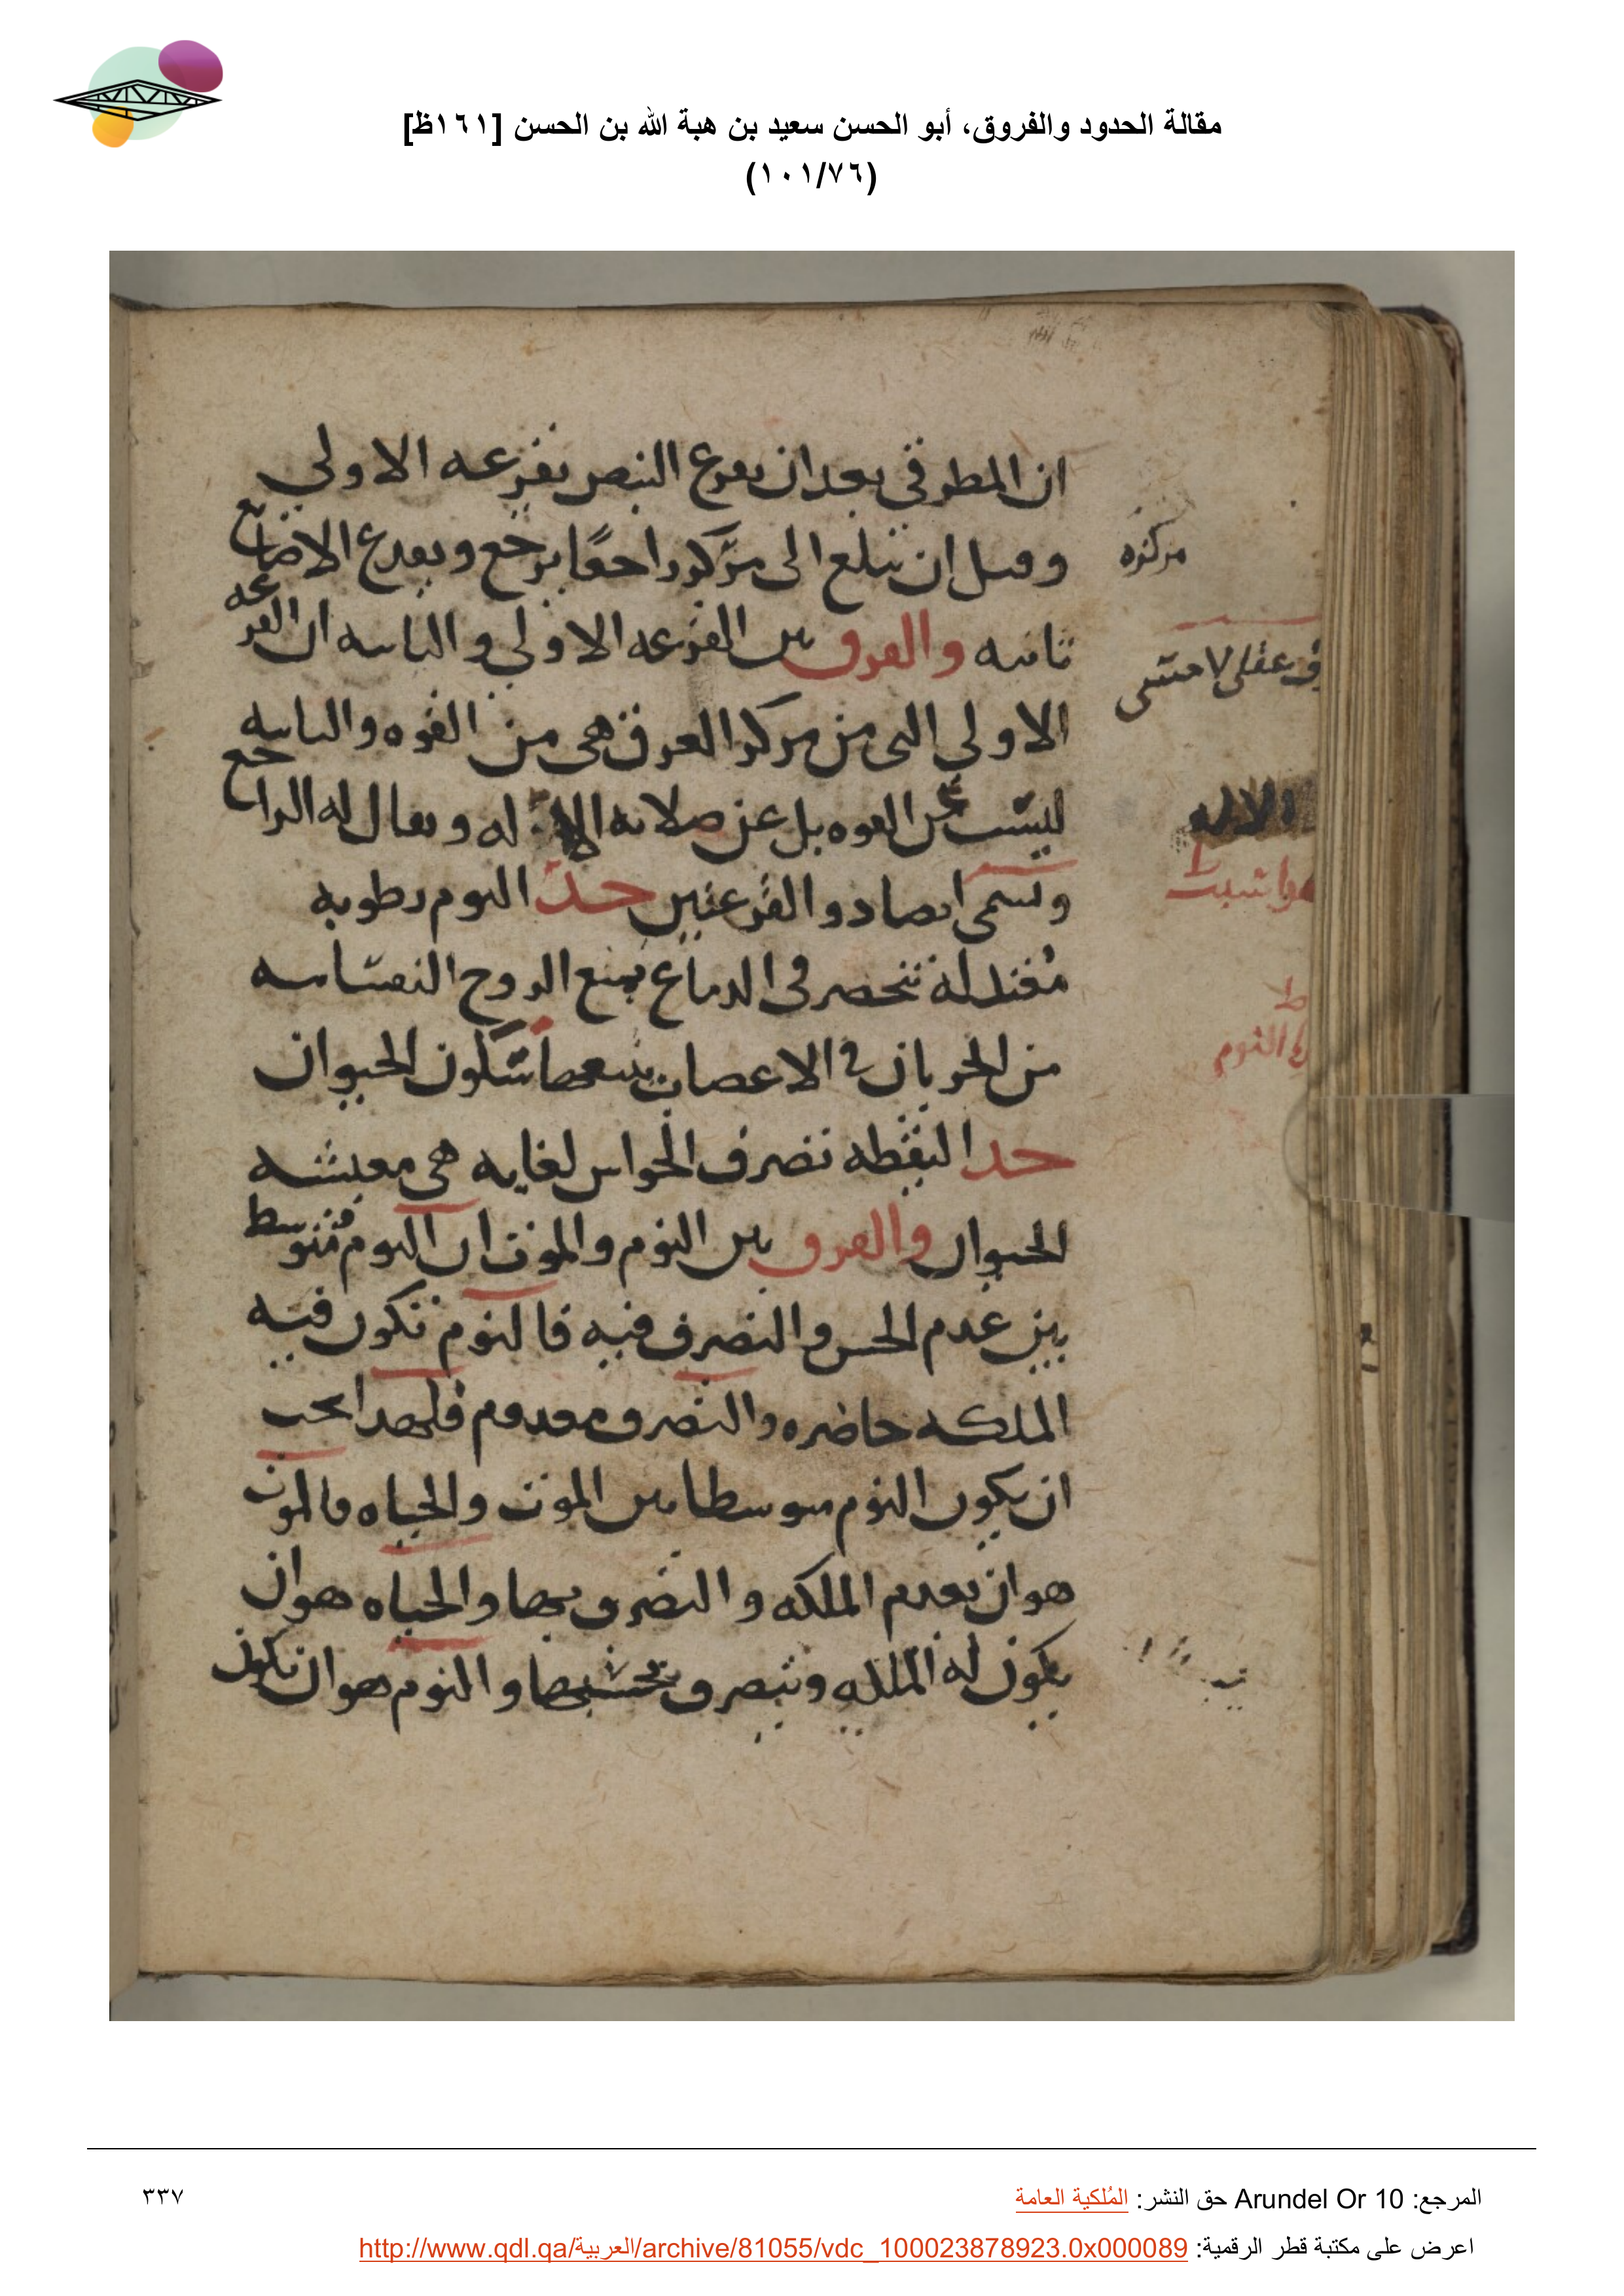 مقالة الحدود والفروق، أبو الحسن سعيد بن هبة الله بن الحسن [١٦١ظ]
(١٠١/٧٦)
ان المطرقي بعد ان يقرع النبض بقرعه الاولي
وقبل ان يبلغ الى مركزه راجعًا يرجع ويقرع الاصابع
مركزه
ثانيه والفرق بين القرعه الاولي والثانيه ان القرعه
الاولي التي من مركز العرق هي من القوه والثانيه
ليست عن القوه بل عن صلابه الاله ويقال له الراجع
الاله
وتسمى ايضا ذو القرعتين حد النوم رطوبه
معتدلة تنحصر في الدماغ يمنع الروح النفسانيه
من الجريان في الاعصاب يتبعها سكون الحيوان
النوم
حد اليقظه تصرف الحواس لغايه هي معيشه
الحيوان والفرق بين النوم والموت ان النوم متوسط
بين عدم الحس والتصرف فيه فالنوم تكون فيه
الملكه حاضره والتصرف معدوم فلهذا يجب
ان يكون النوم متوسطا بين الموت والحياه فالموت
هو ان يعدم الملكه والتصرف بها والحياه هو ان
يكون له الملكه ويتصرف بحسبها والنوم هو ان تكون
المرجع: Arundel Or 10 حق النشر: المُلكية العامة
٣٣٧
اعرض على مكتبة قطر الرقمية: http://www.qdl.qa/العربية/archive/81055/vdc_100023878923.0x000089